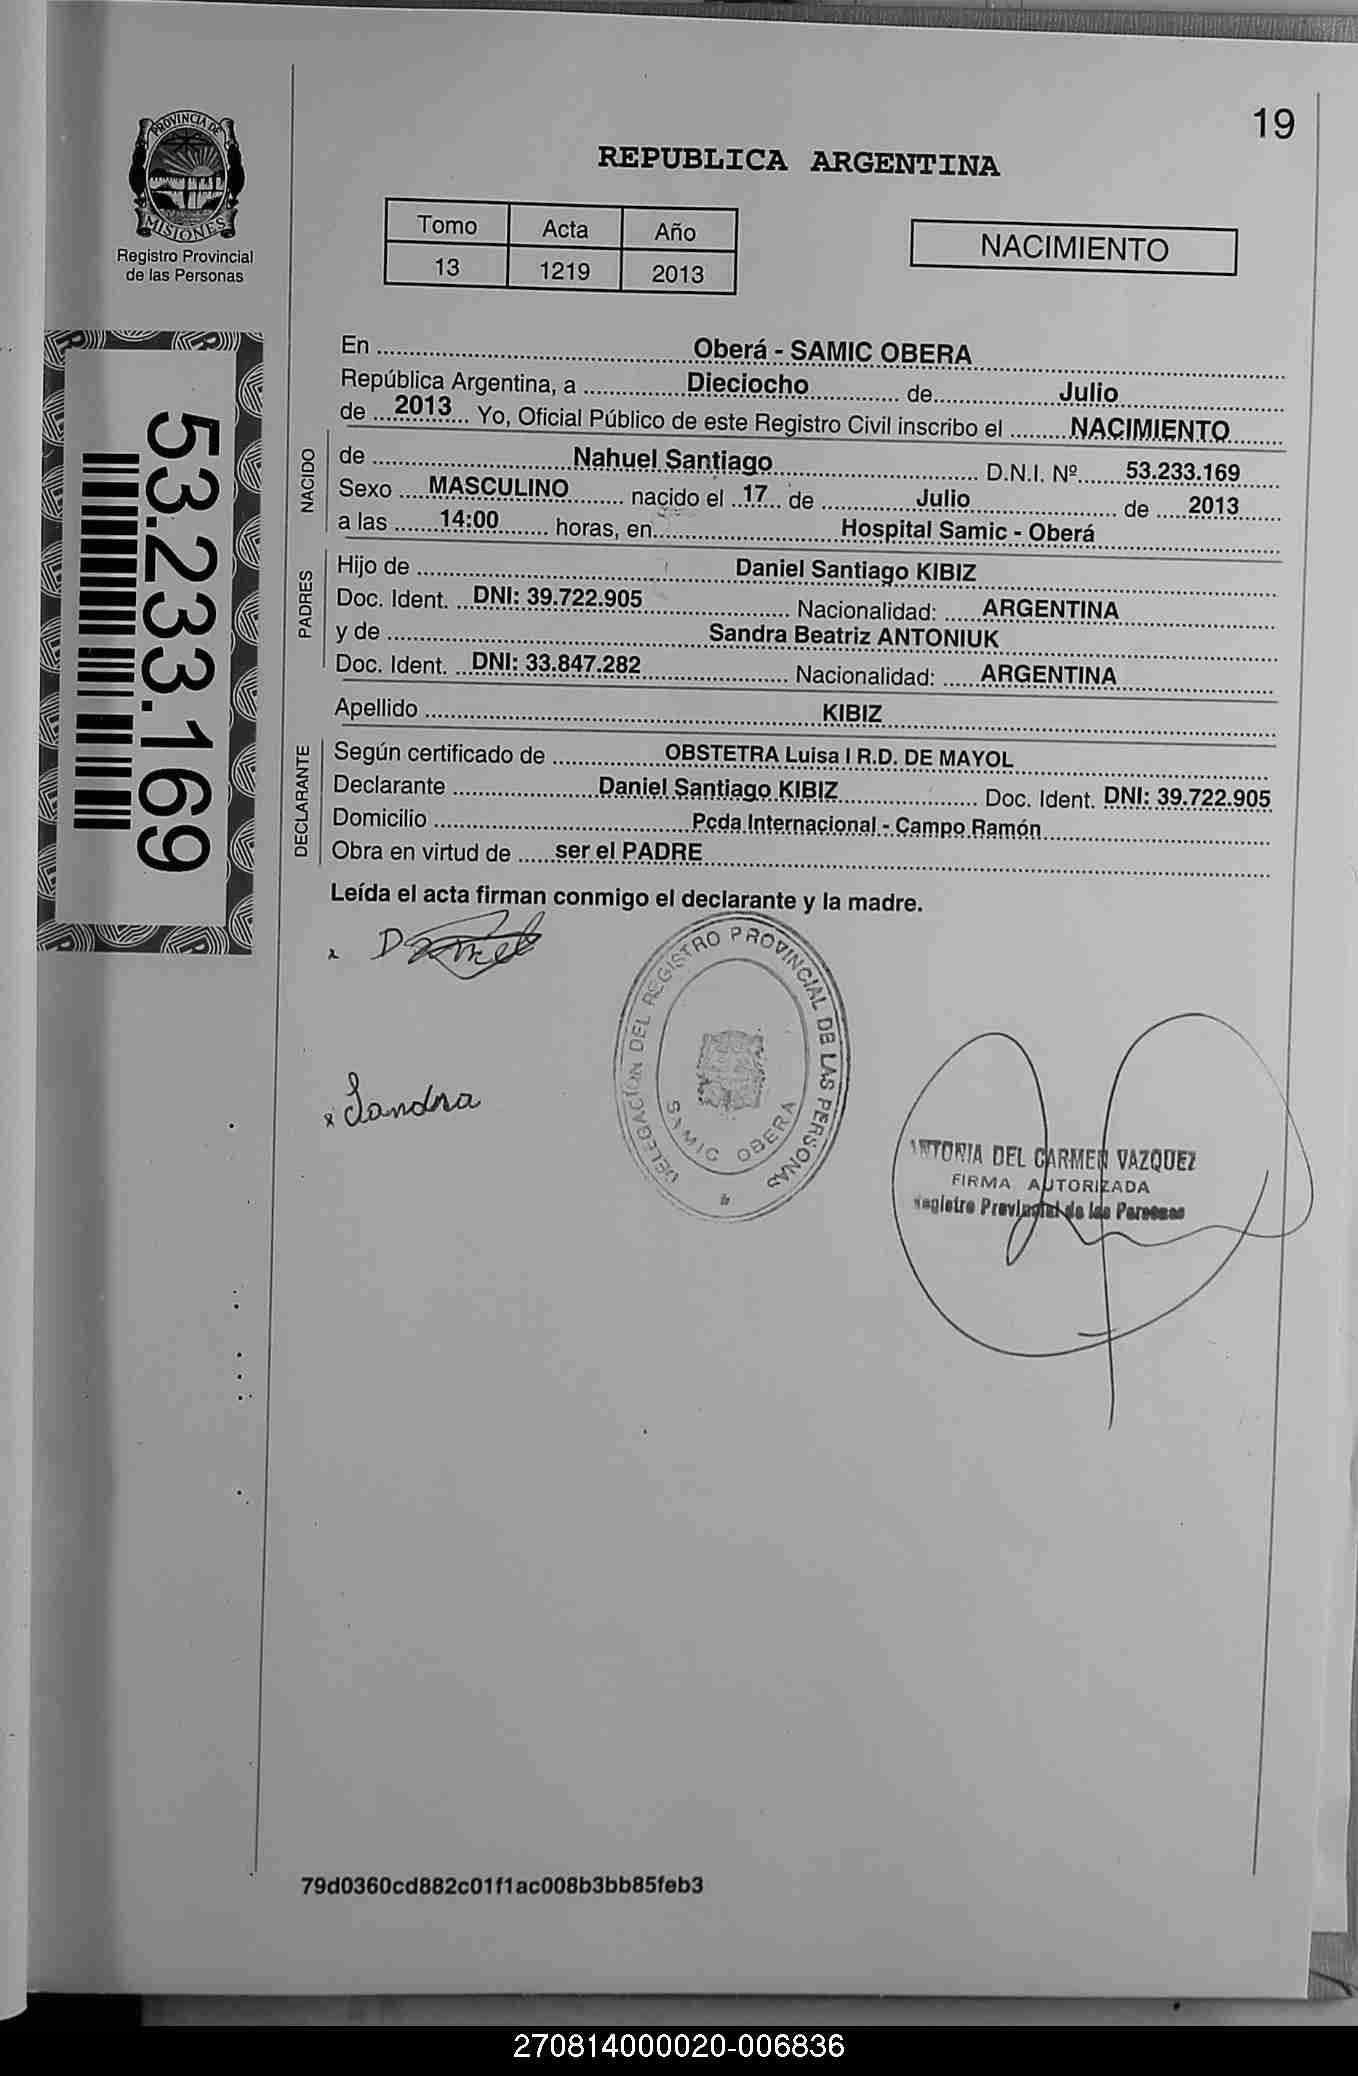 19
PROVINCIA DE
MISIONES
Registro Provincial
de las Personas
REPUBLICA ARGENTINA
Tomo Acta Año
13 1219 2013
NACIMIENTO
53.233.169
En Oberá - SAMIC OBERA
República Argentina, a Dieciocho de Julio
de 2013 Yo, Oficial Público de este Registro Civil inscribo el NACIMIENTO
NACIDO
de Nahuel Santiago D.N.I. Nº 53.233.169
Sexo MASCULINO nacido el 17 de Julio de 2013
a las 14:00 horas, en Hospital Samic - Oberá
PADRES
Hijo de Daniel Santiago KIBIZ
Doc. Ident. DNI: 39.722.905 Nacionalidad: ARGENTINA
y de Sandra Beatriz ANTONIUK
Doc. Ident. DNI: 33.847.282 Nacionalidad: ARGENTINA
Apellido KIBIZ
DECLARANTE
Según certificado de OBSTETRA Luisa I R.D. DE MAYOL
Declarante Daniel Santiago KIBIZ Doc. Ident. DNI: 39.722.905
Domicilio Pcda Internacional - Campo Ramón
Obra en virtud de ser el PADRE
Leída el acta firman conmigo el declarante y la madre.
x Daniel
x Sandra
DELEGACIÓN DEL REGISTRO PROVINCIAL DE LAS PERSONAS
SAMIC OBERA
ANTONIA DEL CARMEN VAZQUEZ
FIRMA AUTORIZADA
Registro Provincial de las Personas
79d0360cd882c01f1ac008b3bb85feb3
270814000020-006836